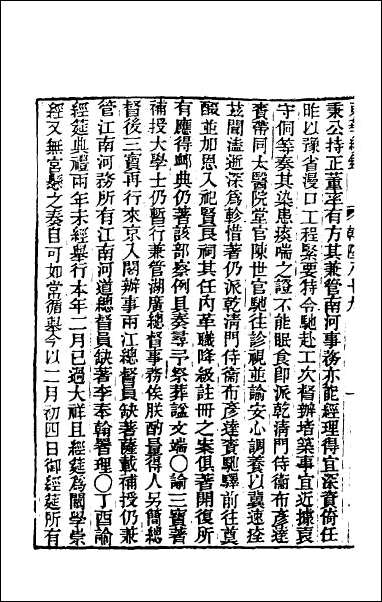 東華續錄　乾隆八十九
秉公持正董率有方其兼管南河事務亦能經理得宜深資倚任
昨以豫省漫口工程緊要特令馳赴工次督辦堵築事宜近據袁
守侗等奏其染患痰喘之證不能眠食即派乾清門侍衛布彥達
賚帶同太醫院堂官陳世官馳往診視並諭安心調養以冀速痊
茲聞溘逝深為軫惜著仍派乾清門侍衛布彥達賚馳驛前往奠
醊並加恩入祀賢良祠其任內革職降級註冊之案俱著開復所
有應得卹典仍著該部察例具奏尋予祭葬諡文端〇諭三寶著
補授大學士仍暫行兼管湖廣總督事務俟朕酌量得人另簡總
督後三寶再行來京入閣辦事兩江總督員缺著薩載補授仍兼
管江南河務所有江南河道總督員缺著李奉翰署理〇丁酉諭
經筵典禮兩年未經舉行本年二月已過大祥且經筵為闡學崇
經又無宮懸之奏自可如常循舉今以二月初四日御經筵所有